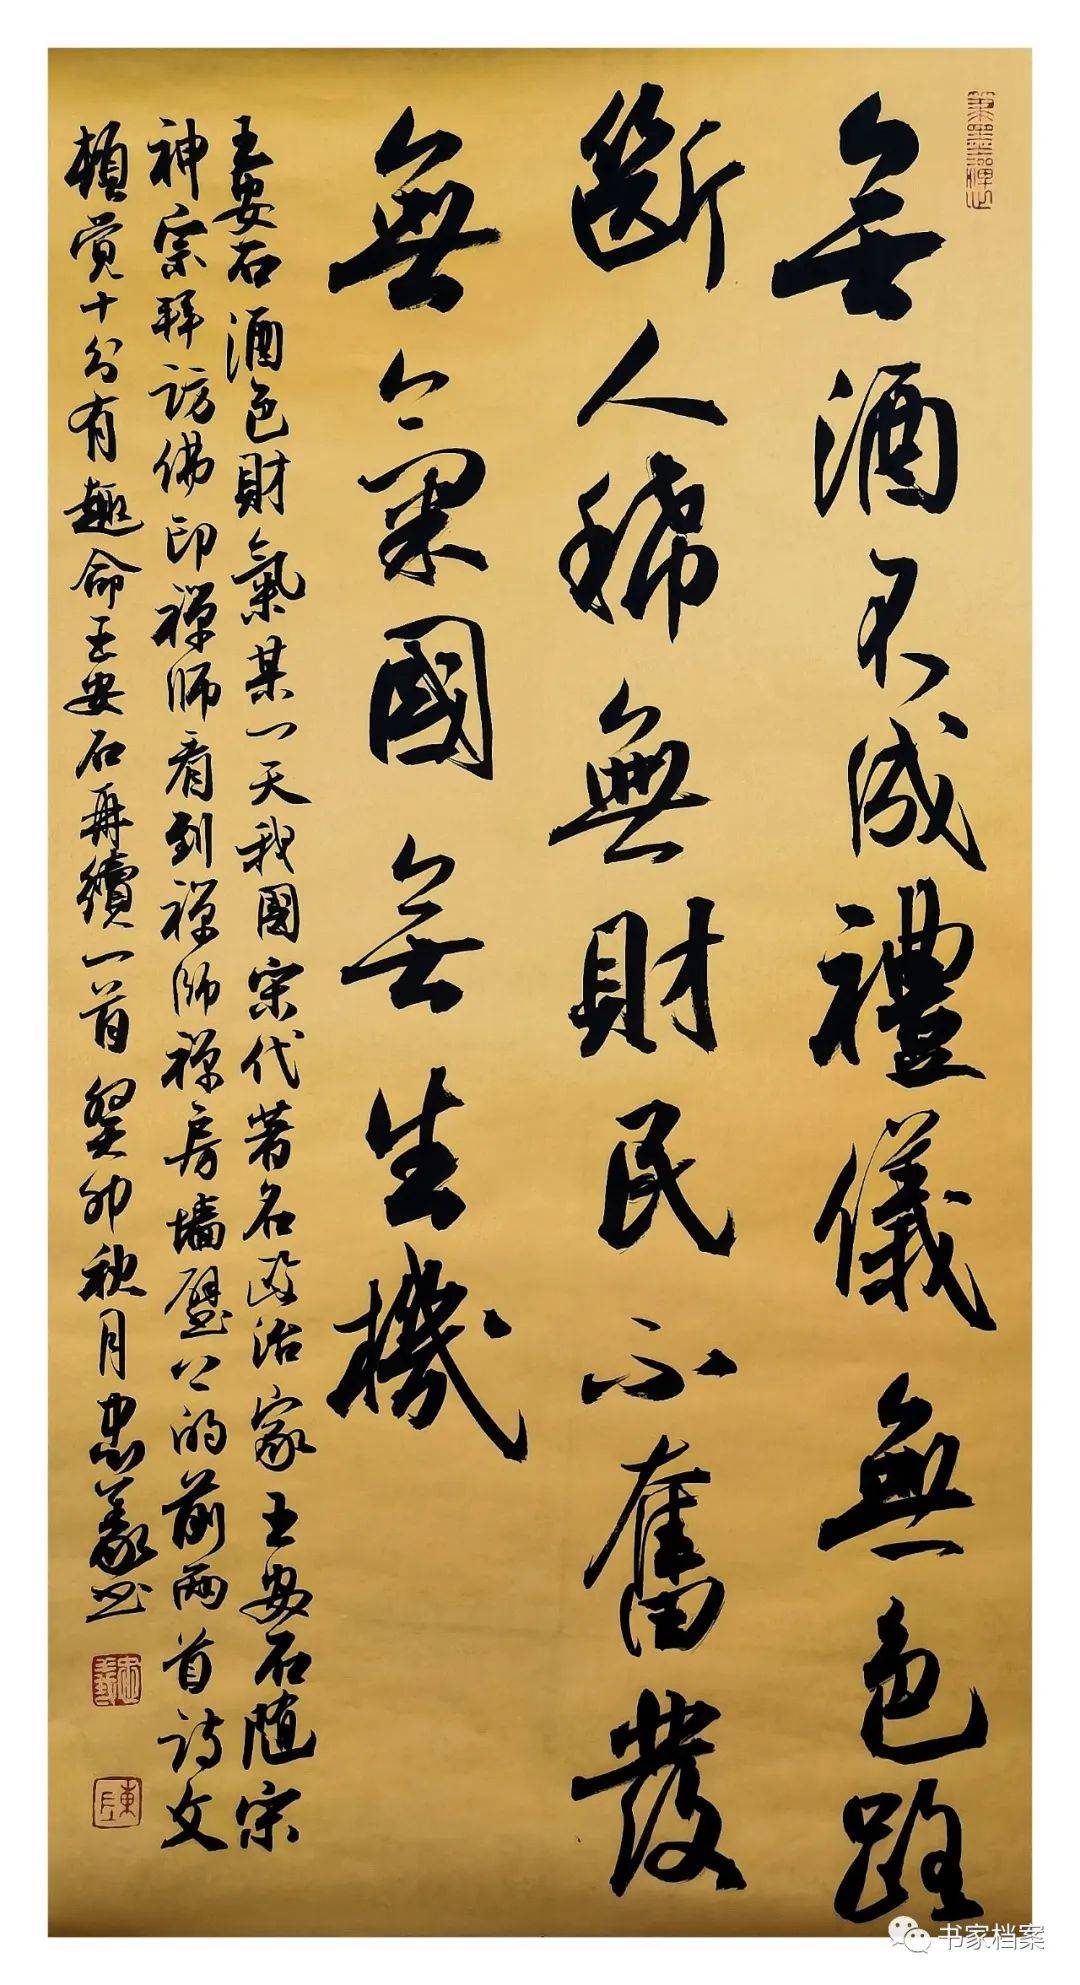 無酒不成禮儀無色路
斷人稀無財民不奮發
無氣國無生機
王安石酒色財氣某一天我國宋代著名政治家王安石随宋
神宗拜訪佛印禅師看到禅師禅房墙壁上的前兩首詩文
頓覺十分有趣命王安石再續一首癸卯秋月忠義书
忠義
书家档案